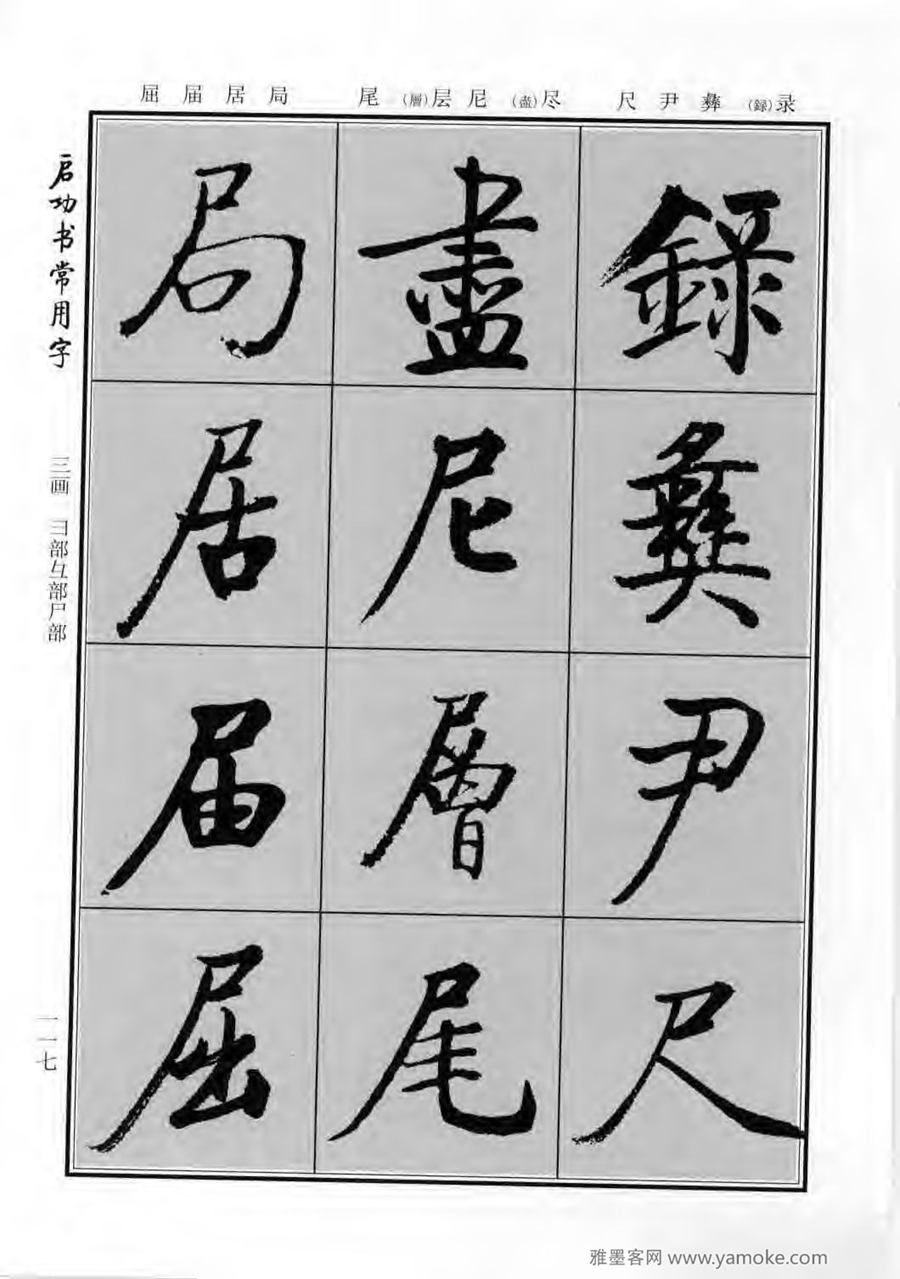 录(録)彝尹尺 尽(盡)尼层(層)尾 局居届屈
録彝尹尺
盡尼層尾
局居届屈
启功书常用字
三画 彐部彑部尸部
一一七
雅墨客网 www.yamoke.com